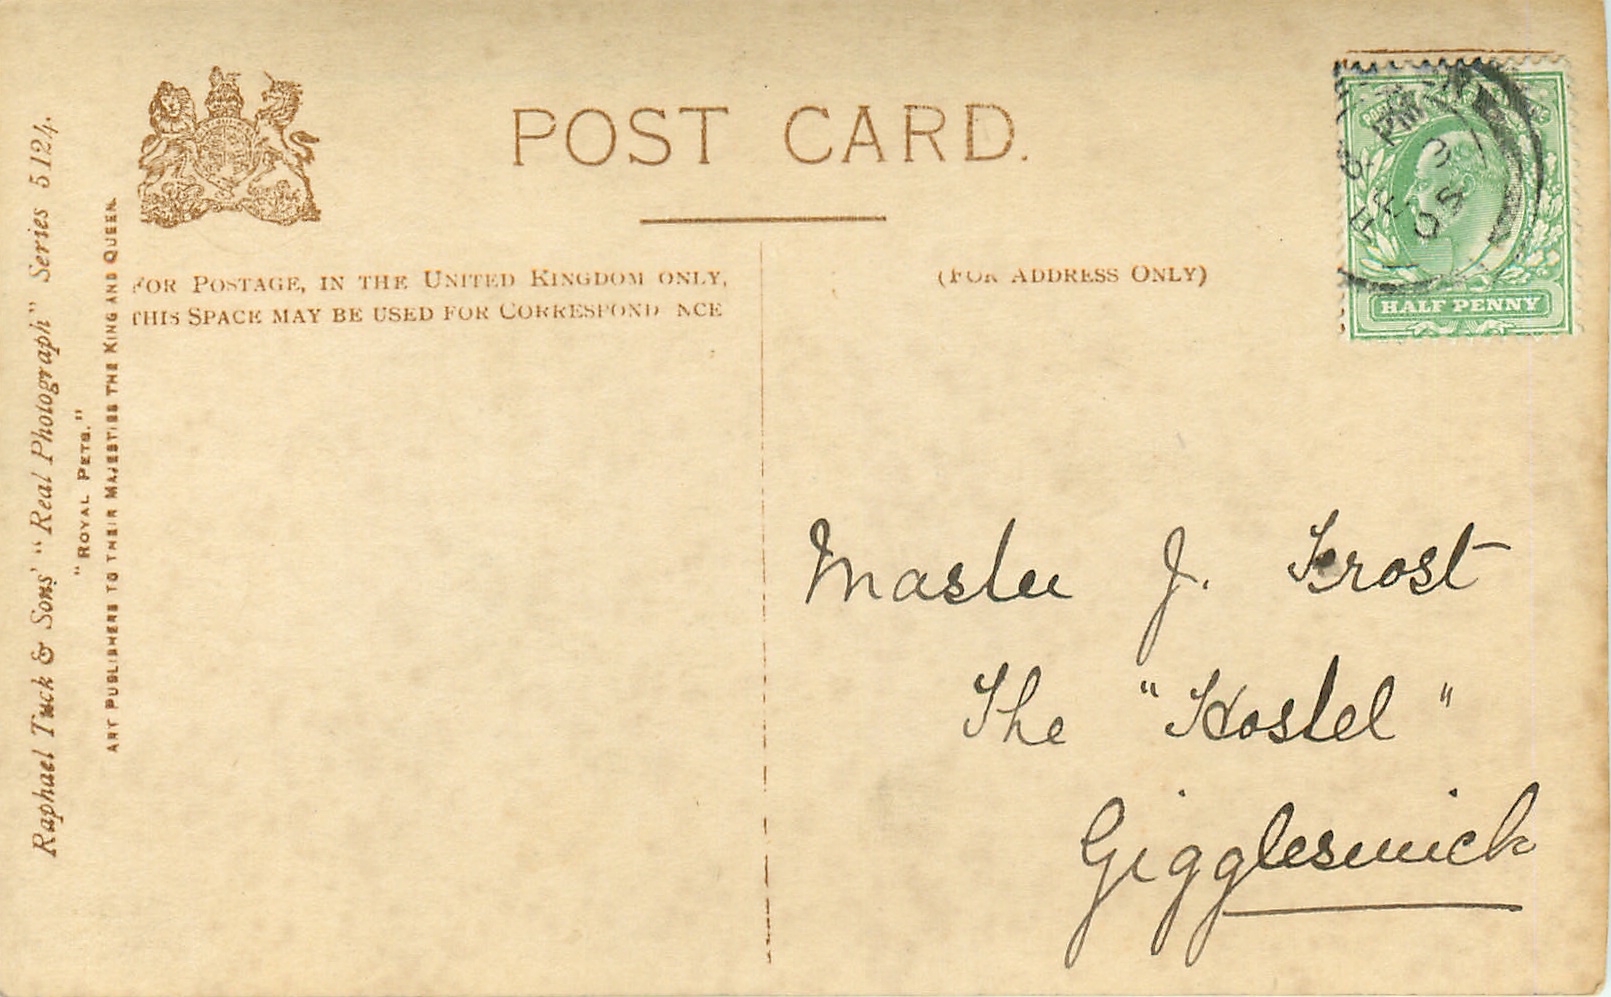 Raphael Tuck & Sons' "Real Photograph" Series 5124.
"ROYAL PETS."
ART PUBLISHERS TO THEIR MAJESTIES THE KING AND QUEEN.
POST CARD.
FOR POSTAGE, IN THE UNITED KINGDOM ONLY,
THIS SPACE MAY BE USED FOR CORRESPOND NCE
(FOR ADDRESS ONLY)
8 PM
FE 3
05
HALF PENNY
Master J. Frost
The "Hostel"
Giggleswick